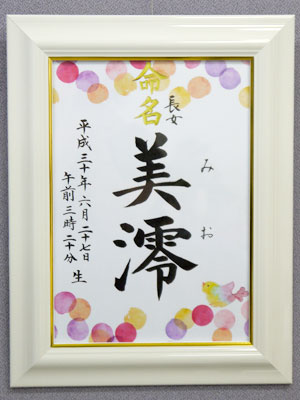 命名
長女
みお
美澪
平成三十年六月二十七日
午前三時二十分 生